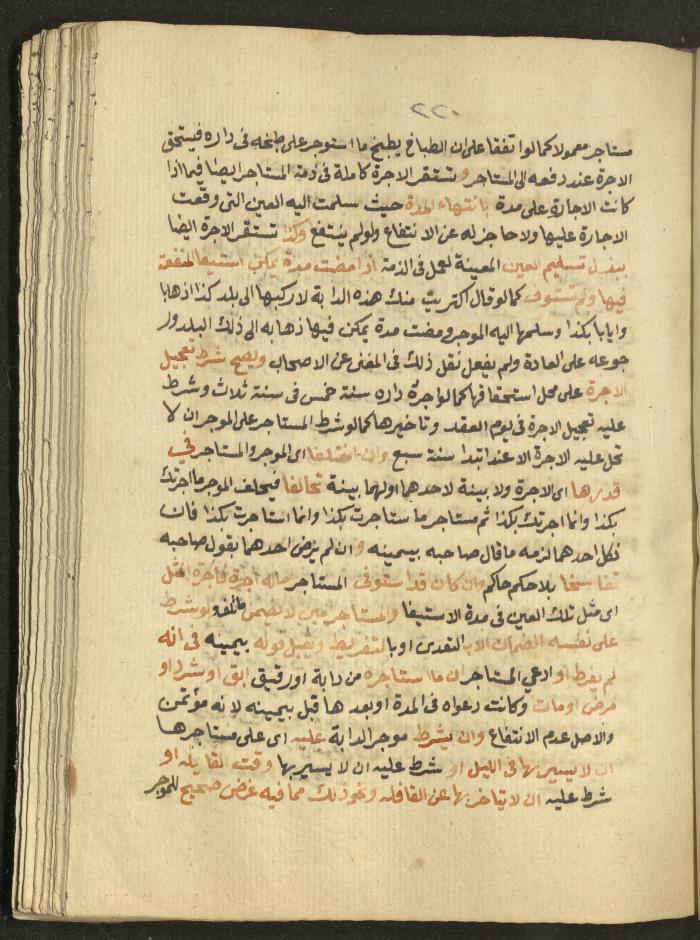 ٢٢٠
مستاجر معمولا كما لو اتفقا على ان الطباخ يطبخ ما استوجر على طبخه فى داره فيستحق
الاجرة عند دفعه الى المستاجر وتستقر الاجرة كاملة فى ذمة المستاجر ايضا فيما اذا
كانت الاجارة على مدة بانتهاء المدة حيث سلمت اليه العين التى وقعت
الاجارة عليها ولا حاجز له عن الانتفاع ولو لم ينتفع وكذا تستقر الاجرة ايضا
ببذل تسليم العين المعينة لعمل فى الذمة اذا مضت مدة يمكن استيفا المنفعة
فيها ولم تستوف كما لو قال اكتريت منك هذه الدابة لاركبها الى بلد كذا ذهابا
وايابا بكذا وسلمها اليه الموجر ومضت مدة يمكن فيها ذهابه الى ذلك البلد ور
جوعه على العادة ولم يفعل نقل ذلك فى المغنى عن الاصحاب ويصح شرط تعجيل
الاجرة على محل استحقاقها كما لو اجرة داره سنة خمس فى سنة ثلاث وشرط
عليه تعجيل الاجرة فى يوم العقد وتاخيرها كما لو شرط المستاجر على الموجر ان لا
تحل عليه الاجرة الا عند ابتدا سنة سبع وان اختلفا اى الموجر والمستاجر في
قدرها اى الاجرة ولا بينة لاحدهما اولهما بينة تحالفا فيحلف الموجر ما اجرتك
بكذا وانما اجرتك بكذا ثم مستاجر ما ستاجرت بكذا وانما استاجرت بكذا فان
نكل احدهما لزمه ما قال صاحبه بيمينه وان لم يرض احدهما بقول صاحبه
تفاسخا بلا حكم حاكم وان كان قد استوفى المستاجر ماله اجرة فاجرة المثل
اى مثل تلك العين فى مدة الاستيفا والمستاجر عين لا يضمن ما تلف ولو شرط
على نفسه الضمان الا بـالتعدى او بالتفريط ويقبل قوله بيمينه فى انه
لم يفرط او ادعي المستاجر ان ما ستاجره من دابة او رقيق ابق او شرد او
مرض او مات وكانت دعواه فى المدة او بعدها قبل بيمينه لانه مؤتمن
والاصل عدم الانتفاع وان يشرط موجر الدابة عليه اى على مستاجرها
ان لا يسير بها فى الليل او شرط عليه ان لا يسير بها وقت القايله او
شرط عليه ان لا يتاخر بها عن القافله ونحو ذلك مما فيه غرض صحيح للموجر